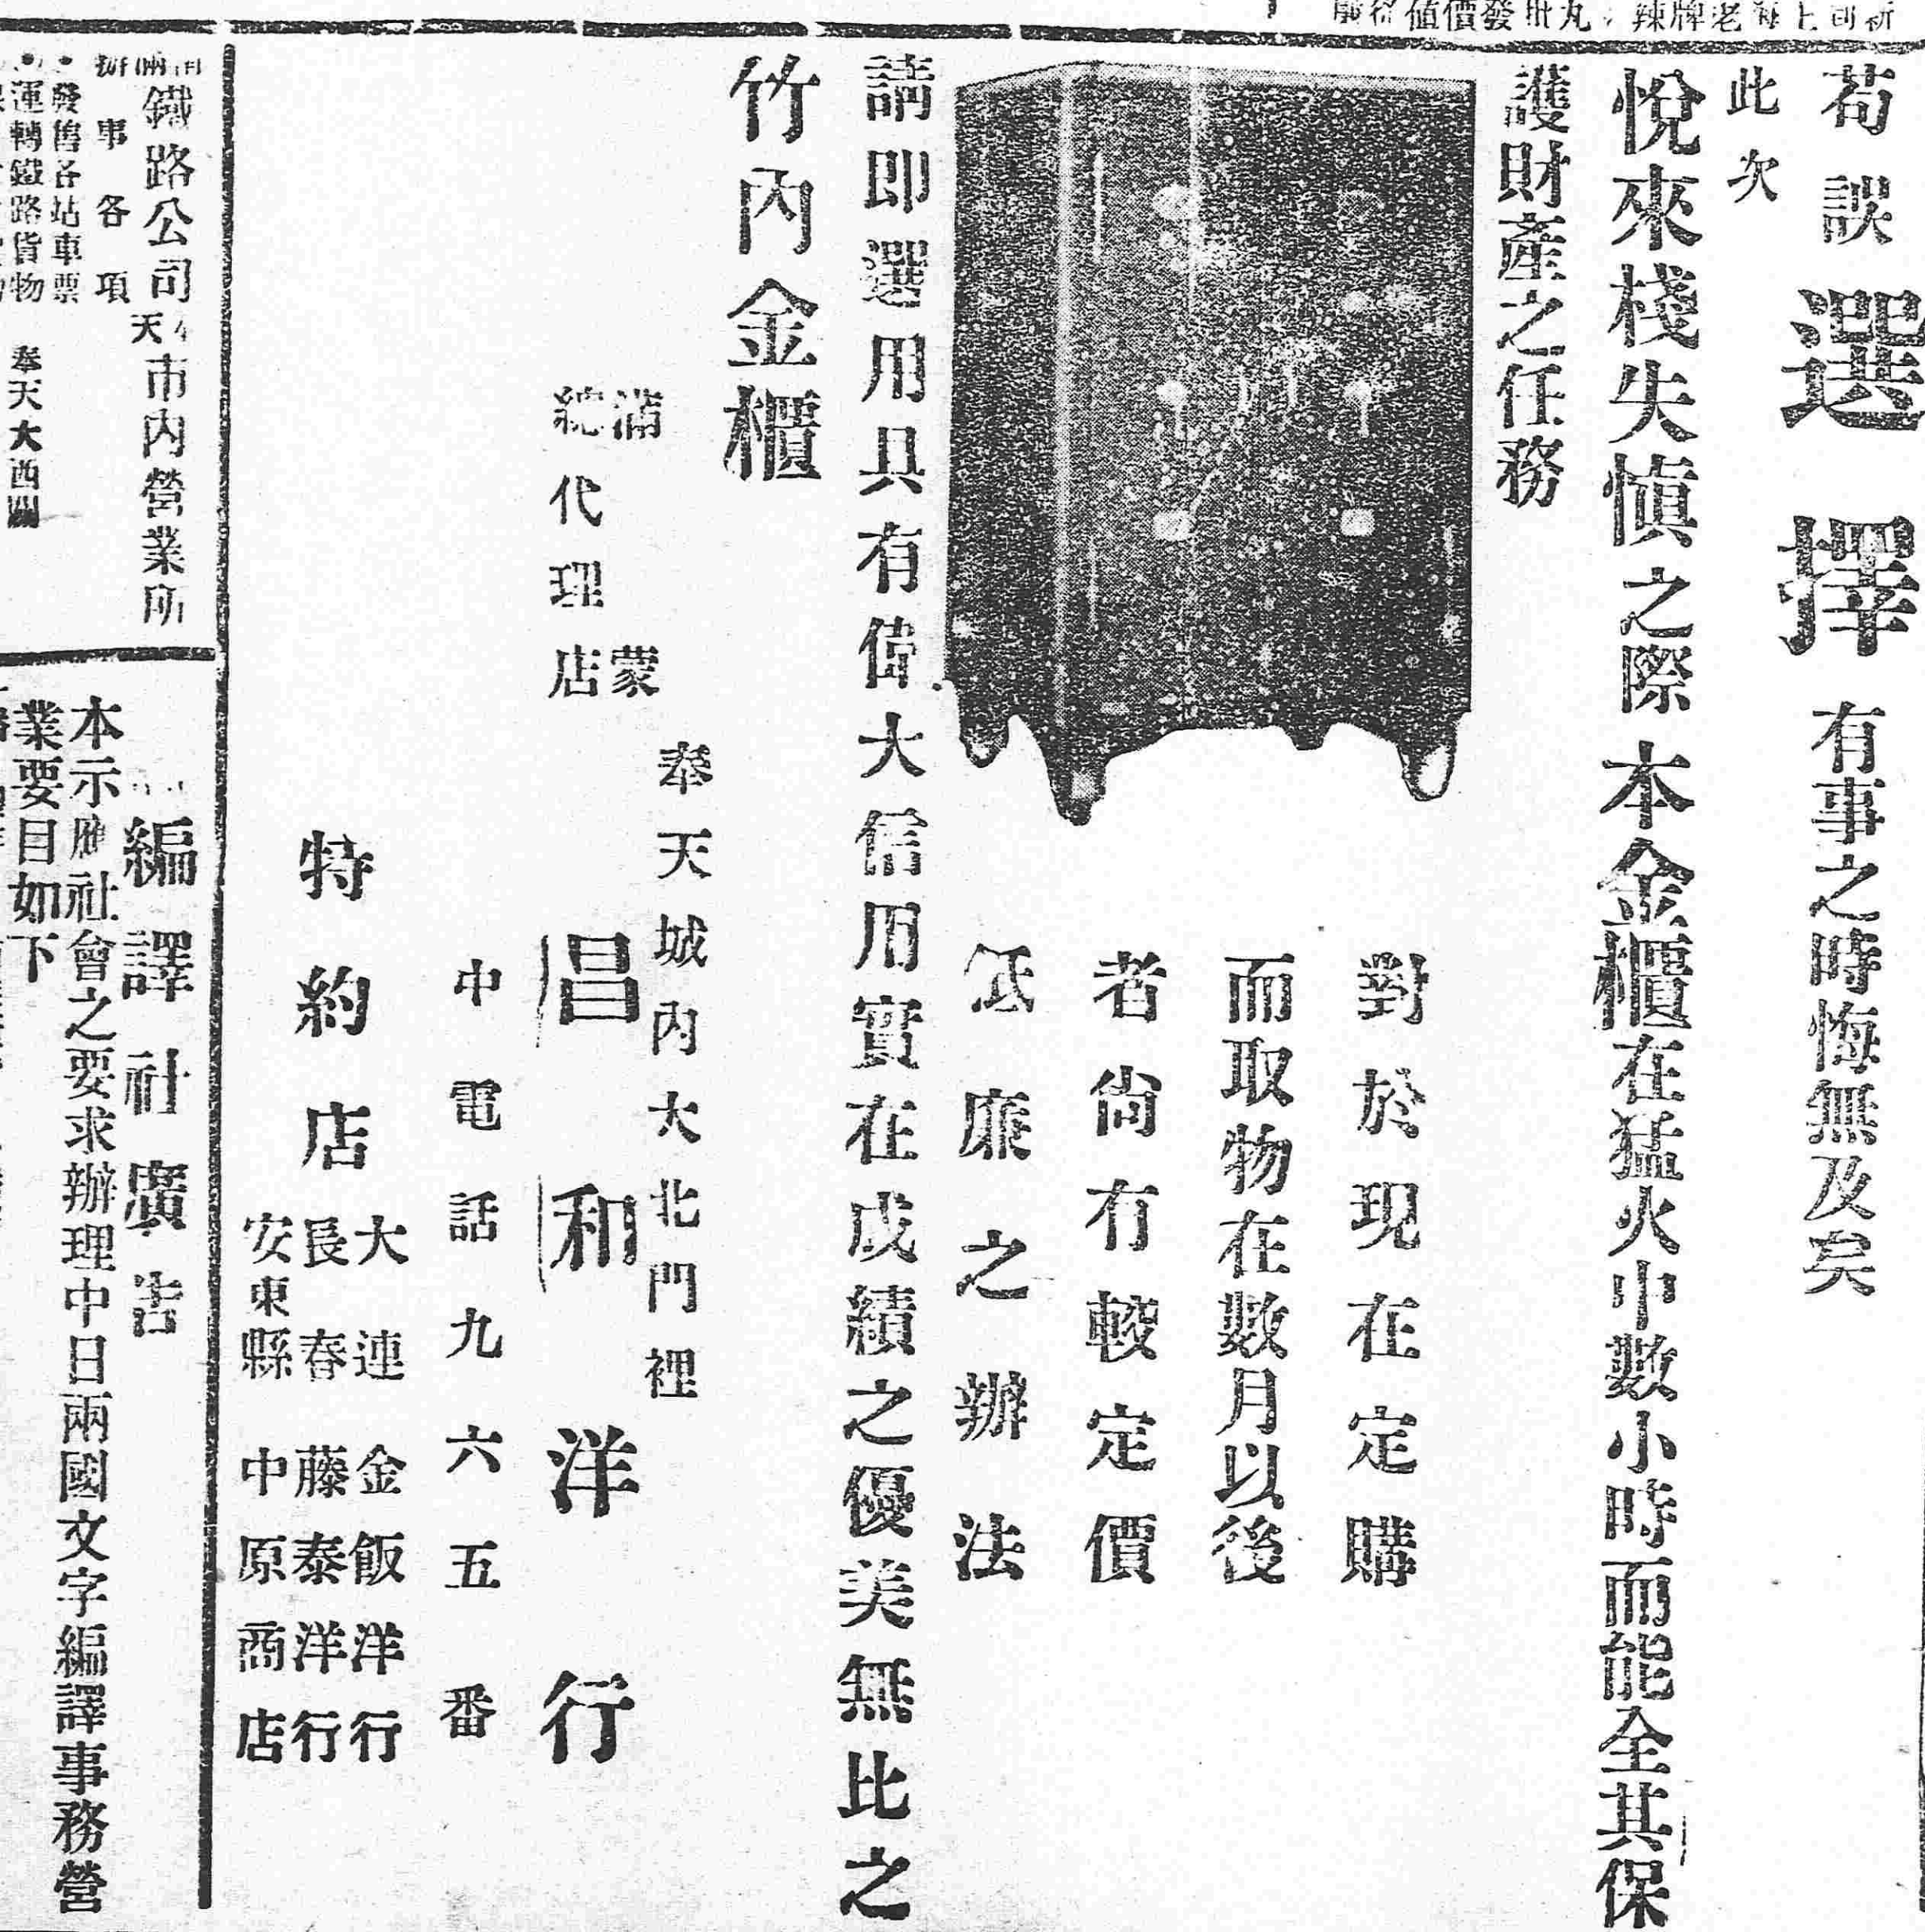 苟誤選擇有事之時悔無及矣
此次
悅來棧失愼之際本金櫃在猛火中數小時而能全其保
護財產之任務
對於現在定購
而取物在數月以後
者尙有較定價
低廉之辦法
請卽選用具有偉大信用實在成績之優美無比之
竹內金櫃
滿蒙
總代理店
奉天城內大北門裡
昌和洋行
中電話九六五番
特約店
大連 金飯洋行
長春 藤泰洋行
安東縣 中原商店
鐵路公司
天市內營業所
辦事各項
發售各站車票
運轉鐵路貨物
奉天大西關
編譯社廣吿
本示應社會之要求辦理中日兩國文字編譯事務營
業要目如下